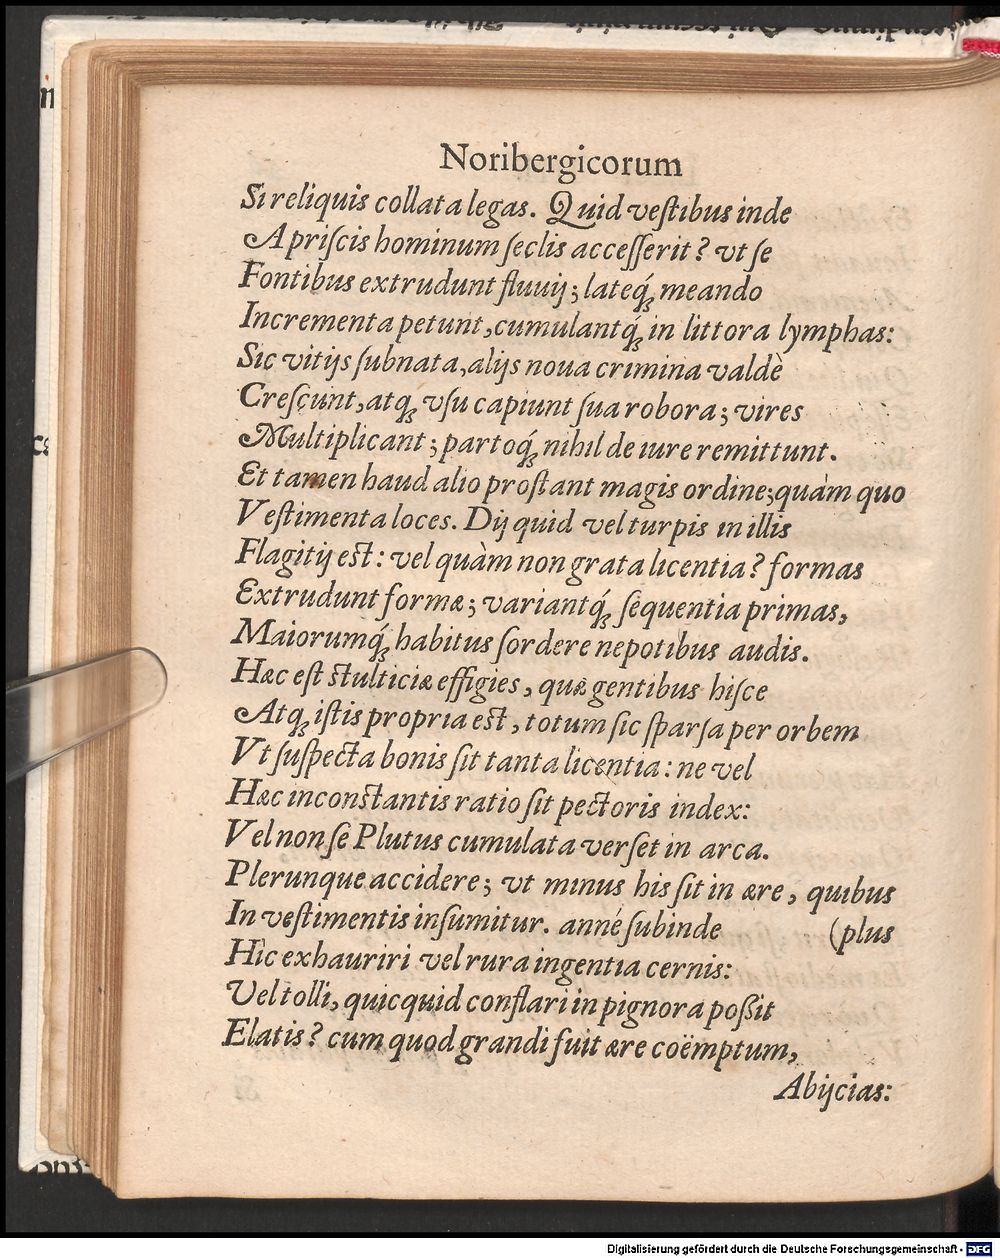 Noribergicorum
Si reliquis collata legas. Quid veſtibus inde
A priſcis hominum ſeclis acceſſerit? vt ſe
Fontibus extrudunt fluuij; lateq́ꝫ meando
Incrementa petunt, cumulantq́ꝫ in littora lymphas:
Sic vitijs ſubnata, alijs noua crimina valdè
Creſcunt, atqꝫ vſu capiunt ſua robora; vires
Multiplicant; partoq́ꝫ nihil de iure remittunt.
Et tamen haud alio proſtant magis ordine; quàm quo
Veſtimenta loces. Dij quid vel turpis in illis
Flagitij eſt: vel quàm non grata licentia? formas
Extrudunt formæ; variantq́ꝫ ſequentia primas,
Maiorumq́ꝫ habitus ſordere nepotibus audis.
Hæc eſt ſtulticiæ effigies, quæ gentibus hiſce
Atqꝫ iſtis propria eſt, totum ſic ſparſa per orbem
Vt ſuſpecta bonis ſit tanta licentia: ne vel
Hæc inconſtantis ratio ſit pectoris index:
Vel non ſe Plutus cumulata verſet in arca.
Plerunque accidere; vt minus his ſit in ære, quibus
In veſtimentis inſumitur. anné ſubinde (plus
Hìc exhauriri vel rura ingentia cernis:
Vel tolli, quicquid conflari in pignora poßit
Elatis? cum quod grandi fuit ære coëmptum,
Abijcias:
Digitalisierung gefördert durch die Deutsche Forschungsgemeinschaft - DFG